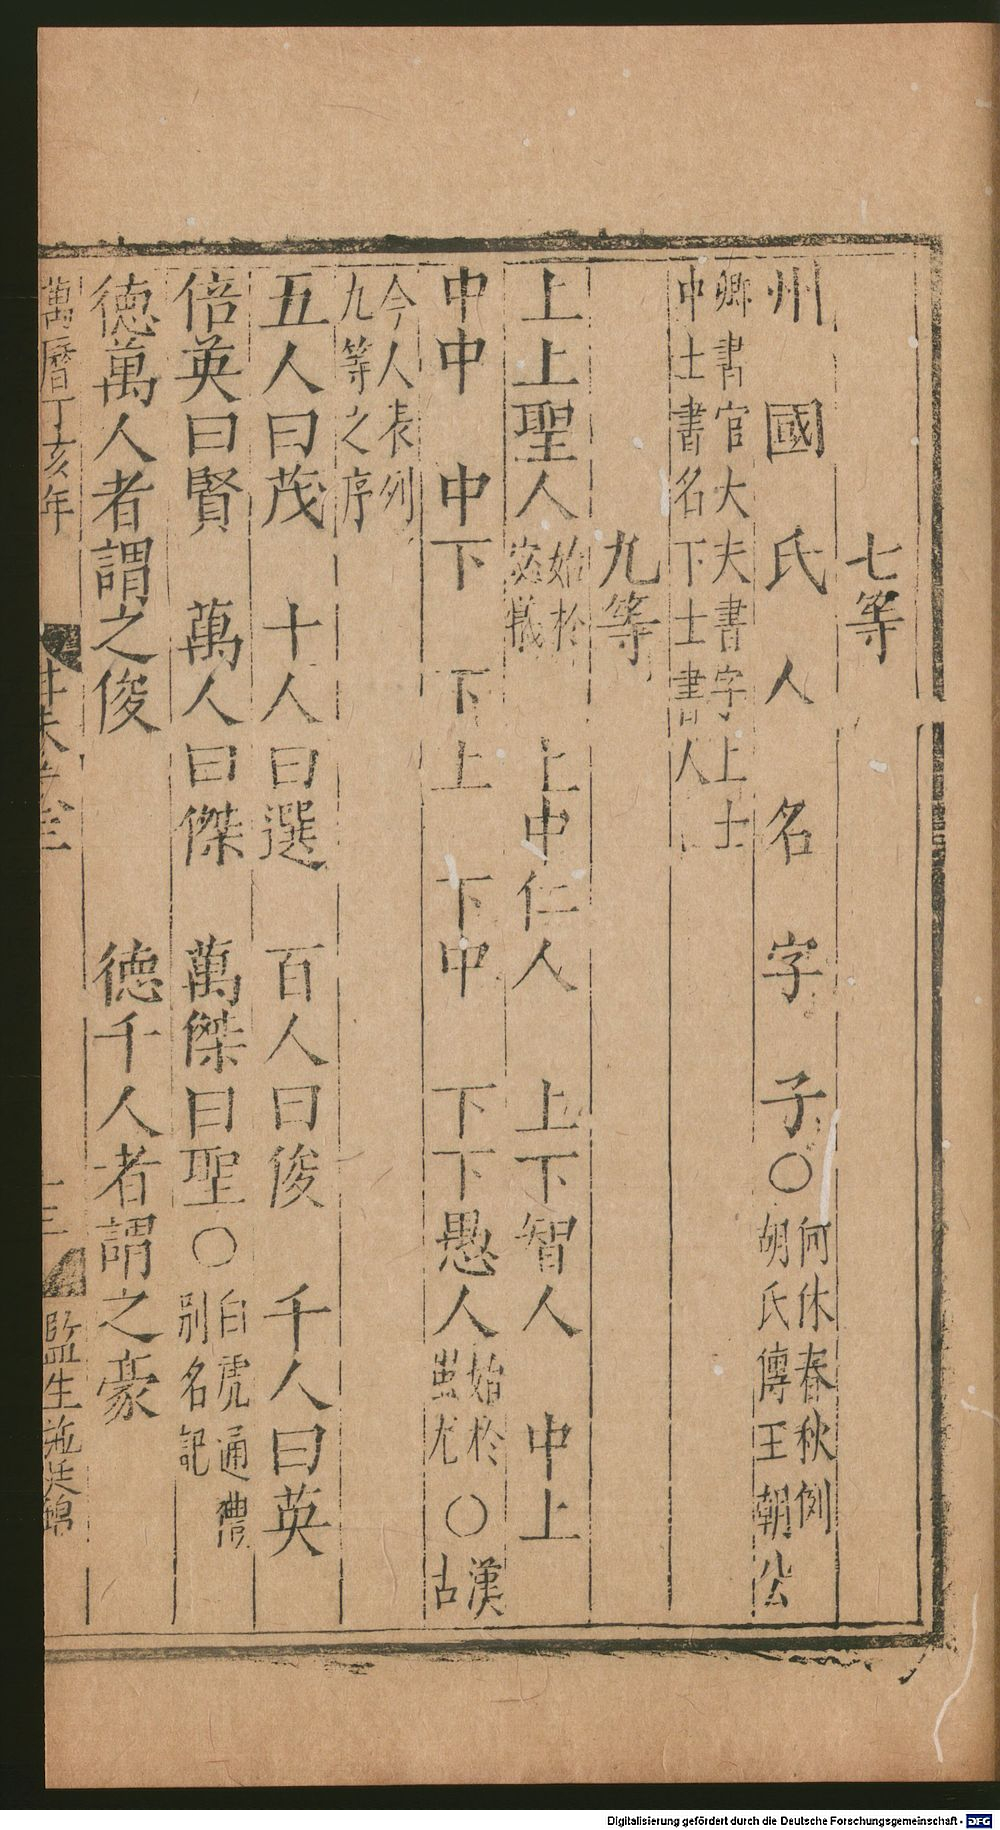 七等
州 國 氏 人 名 字 子○何休春秋例胡氏傳王朝公
卿書官大夫書字上士中士書名下士書人
九等
上上聖人始於宓羲 上中仁人 上下智人 中上
中中 中下 下上 下中 下下愚人始於蚩尤○漢古
今人表列九等之序
五人曰茂 十人曰選 百人曰俊 千人曰英
倍英曰賢 萬人曰傑 萬傑曰聖○白虎通禮別名記
德萬人者謂之俊 德千人者謂之豪
萬曆丁亥年 監生
Digitalisierung gefördert durch die Deutsche Forschungsgemeinschaft - DFG